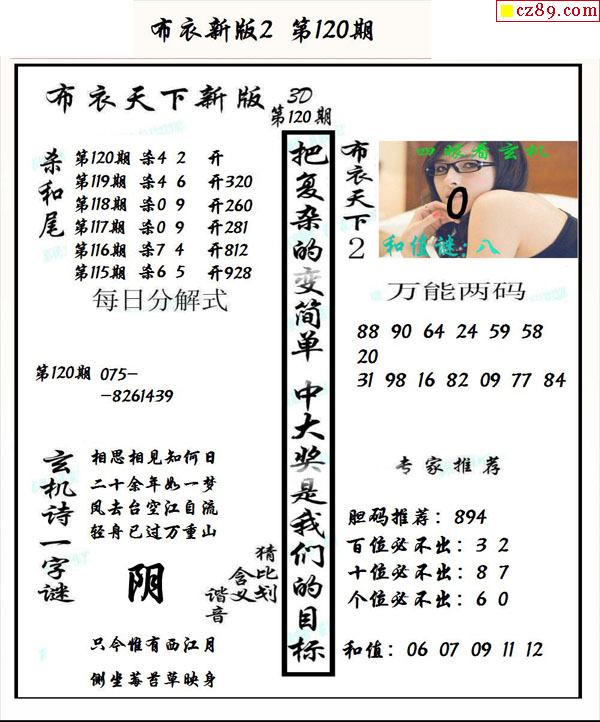 cz89.com
布衣新版2 第120期
布衣天下新版 3D
第120期
杀和尾
第120期 杀4 2 开
第119期 杀4 6 开320
第118期 杀0 9 开260
第117期 杀0 9 开281
第116期 杀7 4 开812
第115期 杀6 5 开928
每日分解式
第120期 075-
-8261439
玄机诗一字谜
相思相见知何日
二十余年如一梦
凤去台空江自流
轻舟已过万重山
阴
猜比划
含义
谐音
只今惟有西江月
侧坐莓苔草映身
把复杂的变简单 中大奖是我们的目标
布衣天下2
四眼看玄机
0
和值谜:八
万能两码
88 90 64 24 59 58
20
31 98 16 82 09 77 84
专家推荐
胆码推荐: 894
百位必不出: 3 2
十位必不出: 8 7
个位必不出: 6 0
和值: 06 07 09 11 12